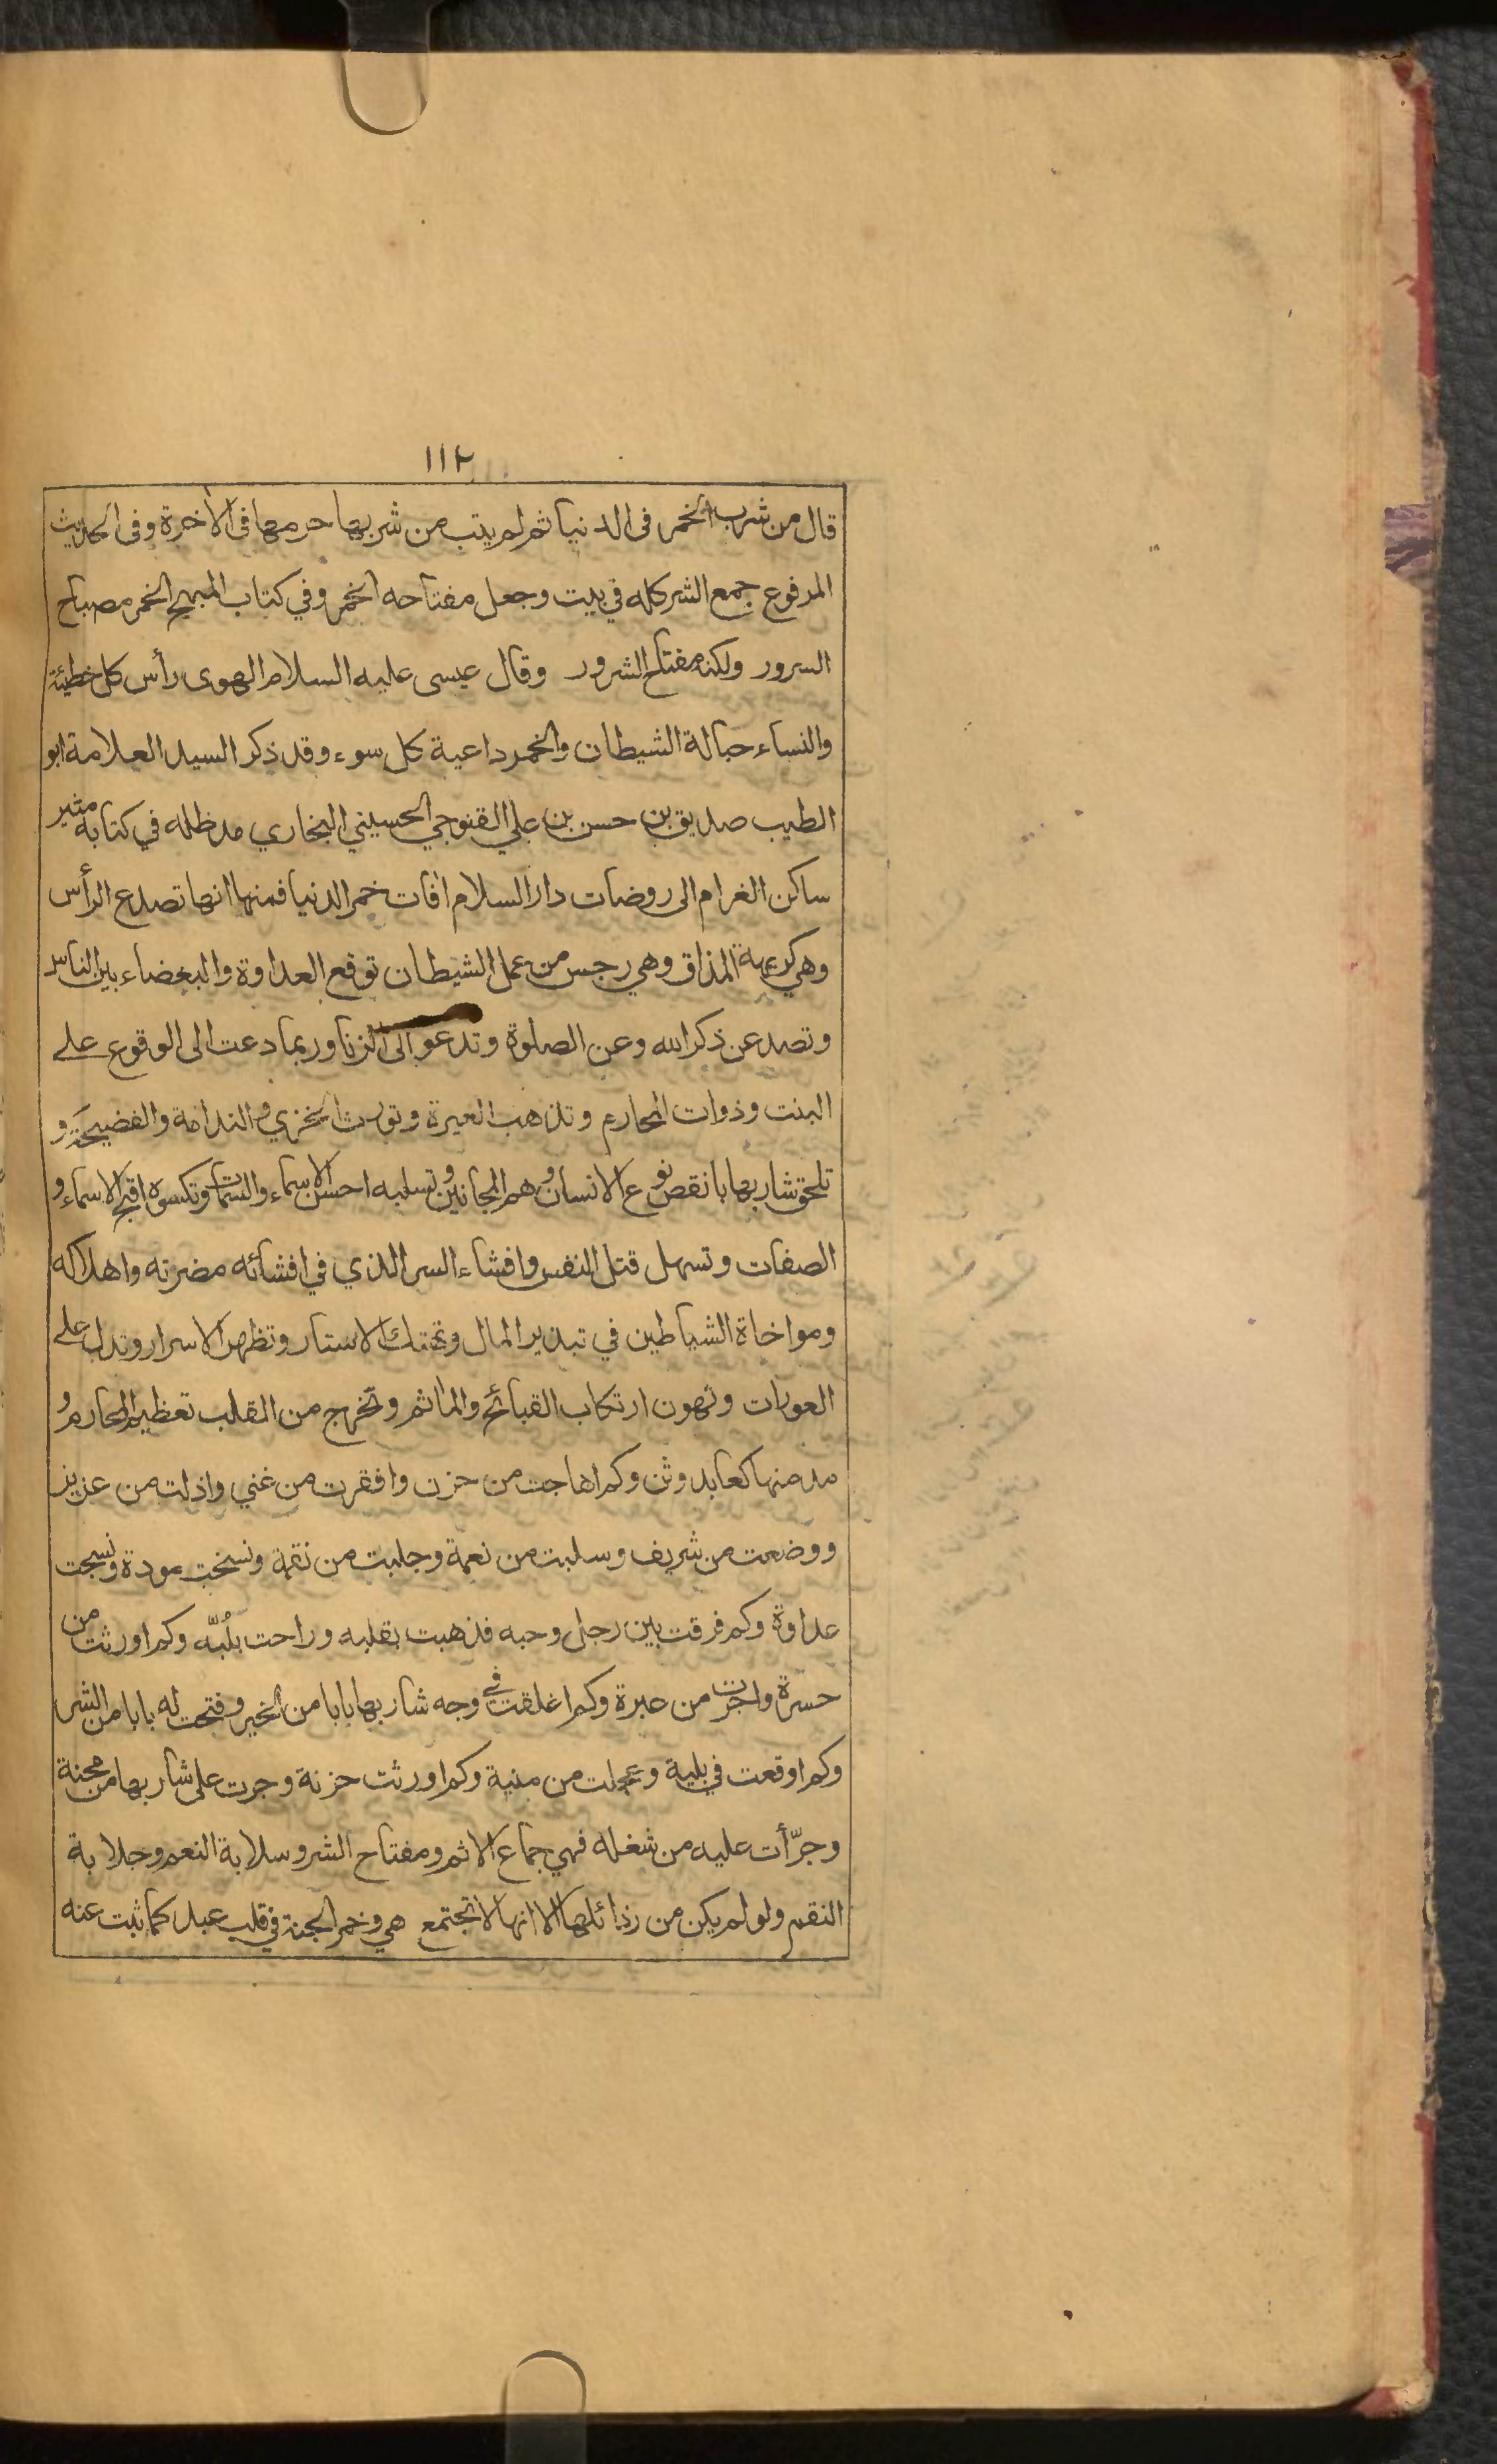 ١١٢
قال من شرب الخمر في الدنيا ثم لم يتب من شربها حرمها في الآخرة وفي الحديث
المرفوع جمع الشر كله في بيت وجعل مفتاحه الخمر وفي كتاب المبهج الخمر مصباح
السرور ولكنه مفتاح الشرور وقال عيسى عليه السلام الهوى رأس كل خطيئة
والنساء حبالة الشيطان والخمر داعية كل سوء وقد ذكر السيد العلامة ابو
الطيب صديق بن حسن بن علي القنوجي الحسيني البخاري مد ظله في كتابه مثير
ساكن الغرام الى روضات دار السلام افات خمر الدنيا فمنها انها تصدع الرأس
وهي كريهة المذاق وهي رجس من عمل الشيطان توقع العداوة والبغضاء بين الناس
وتصد عن ذكر الله وعن الصلوة وتدعو الى الزنا وربما دعت الى الوقوع على
البنت وذوات المحارم وتذهب الغيرة وتورث الخزي والندامة والفضيحة و
تلحق شاربها بانقص نوع الانسان وهم المجانين وتسلبه احسن الاسماء والسمات وتكسوه اقبح الاسماء و
الصفات وتسهل قتل النفس وافشاء السر الذي في افشائه مضرته واهلاكه
ومواخاة الشياطين في تبذير المال وتهتك الاستار وتظهر الاسرار وتدل على
العورات وتهون ارتكاب القبائح والمآثم وتخرج من القلب تعظيم المحارم و
مدمنها كعابد وثن وكم اهاجت من حزن وافقرت من غني واذلت من عزيز
ووضعت من شريف وسلبت من نعمة وجلبت من نقمة ونسخت مودة ونسجت
عداوة وكم فرقت بين رجل وحبه فذهبت بقلبه وراحت بلُبّه وكم اورثت من
حسرة واجرت من عبرة وكم اغلقت في وجه شاربها بابا من الخير وفتحت له بابا من الشر
وكم اوقعت في بلية وعجلت من منية وكم اورثت حزنة وجرت على شاربها من محنة
وجرّأت عليه من شغله فهي جماع الاثم ومفتاح الشر وسلابة النعم وجلابة
النقم ولو لم يكن من رذائلها الا انها لا تجتمع هي وخمر الجنة في قلب عبد كما ثبت عنه